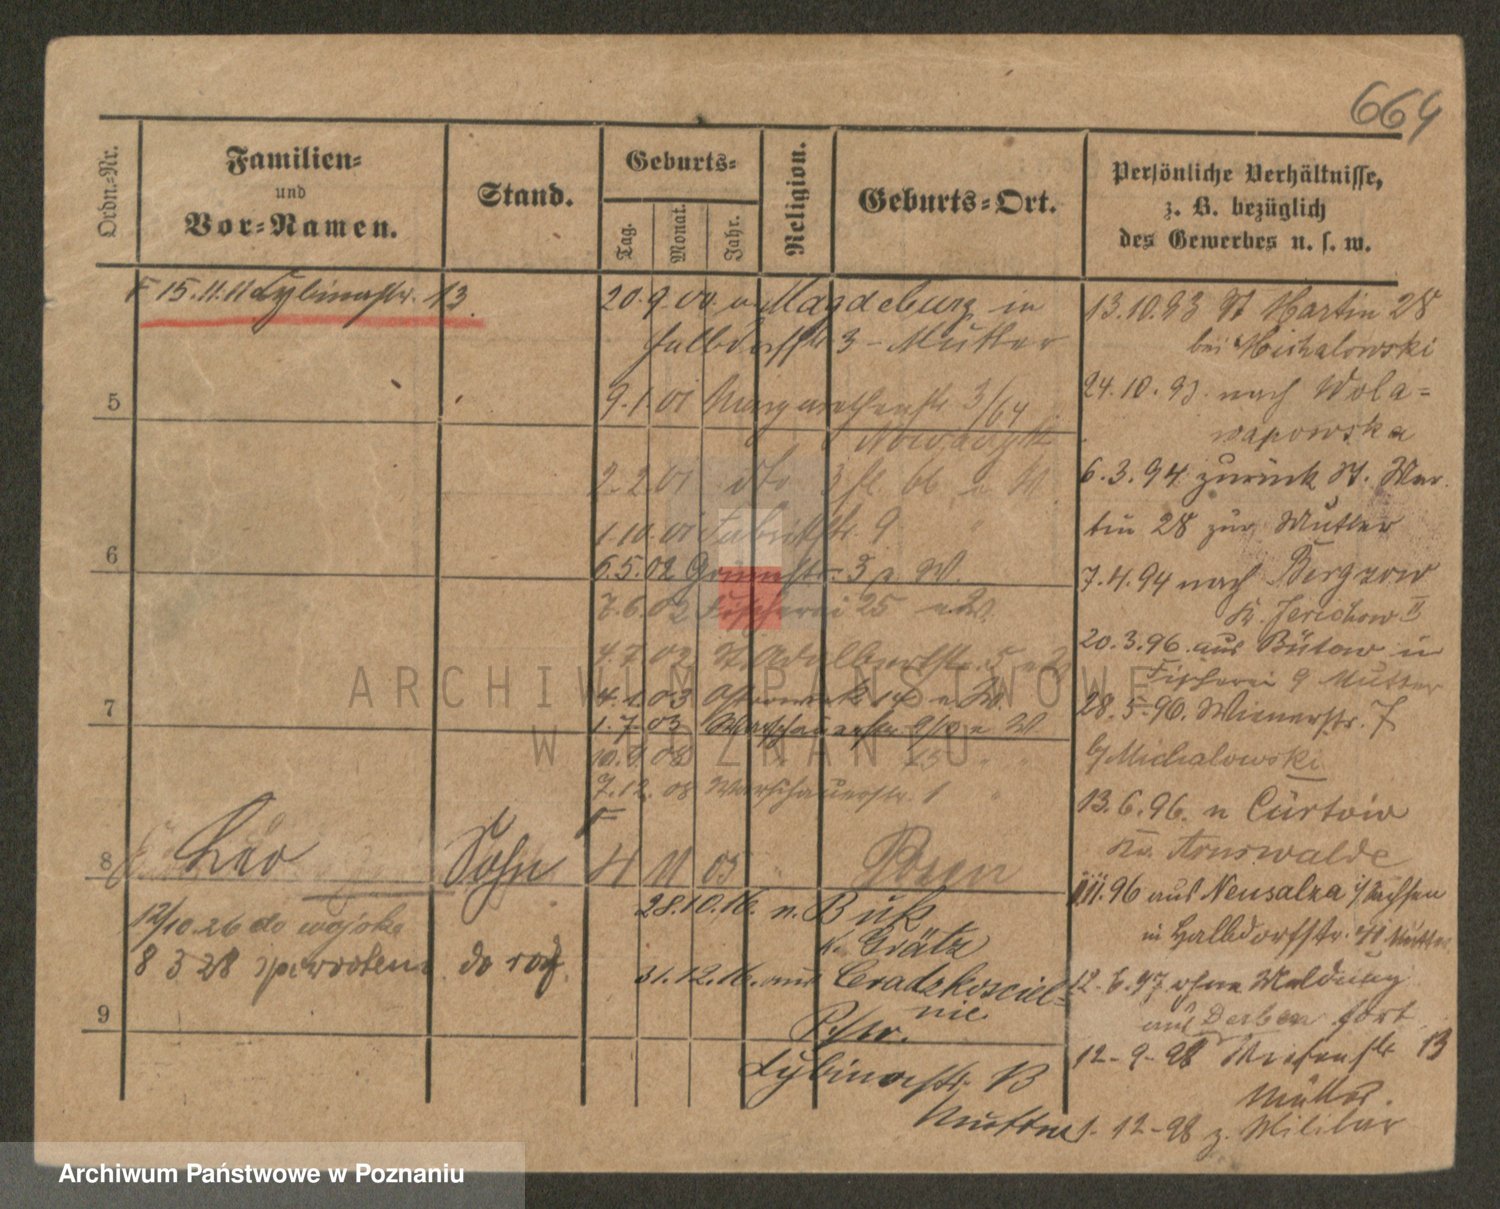 664
Ordn.-Nr.
Familien-
und
Vor-Namen.
Stand.
Geburts-
Tag.
Monat.
Jahr.
Religion.
Geburts-Ort.
Persönliche Verhältnisse,
z. B. bezüglich
des Gewerbes u. s. w.
15.11.11 Lybinastr. 13.
20.9.00. Magdeburg in
3 - Mutter
9.1.01 Margarethenstr 3/64
2.2.01 dto 3
1.10.01 Fabrikstr. 9
6.5.02 3 a. W.
7.6.02 Fischerei 25 a. W.
4.7.02 St Adalbertstr. 5 a W
4.1.03 a. W.
1.7.03 Warschauerstr 9/10 a W
7.12.08 Warschauerstr. 1
5
6
7
8
Leo
Sohn
4 11 03
Posen
28.10.16. n. Buk
Kr. Grätz
31.12.16. aus Gradzkosciel-
nie
Lybinastr. 13
Mutter
12/10.26 do wojska
8 3 28
9
13.10.93 St Martin 28
bei Michalowski
24.10.93. nach Wola=
wapowska
6.3.94 zurück St. Mar-
tin 28 zur Mutter
7.4.94 nach Bergzow
Kr. Jerichow II
20.3.96. aus Bütow in
Fischerei 9 Mutter
28.5.96. Wienerstr. 7
b/ Michalowski
13.6.96. n Cürtow
Kr. Arnswalde
11.96 aus Neusalza i/Sachsen
in Halbdorfstr. Mutter
12.6.97 ohne Meldung
aus Derben fort
12-9-98 Wiesenstr 13
Mutter.
1.12-98 z. Militär
ARCHIWUM PAŃSTWOWE
W POZNANIU
Archiwum Państwowe w Poznaniu